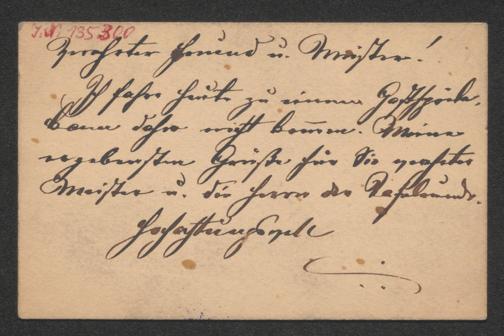 I.N. 135300
Verehrter Freund u. Meister!
Ich fahre heute zu einem Gastspiele,
kann daher nicht kommen. Meine
ergebensten Grüße für Sie verehrter
Meister u. die Herrn der Tafelrunde.
Hochachtungsvoll